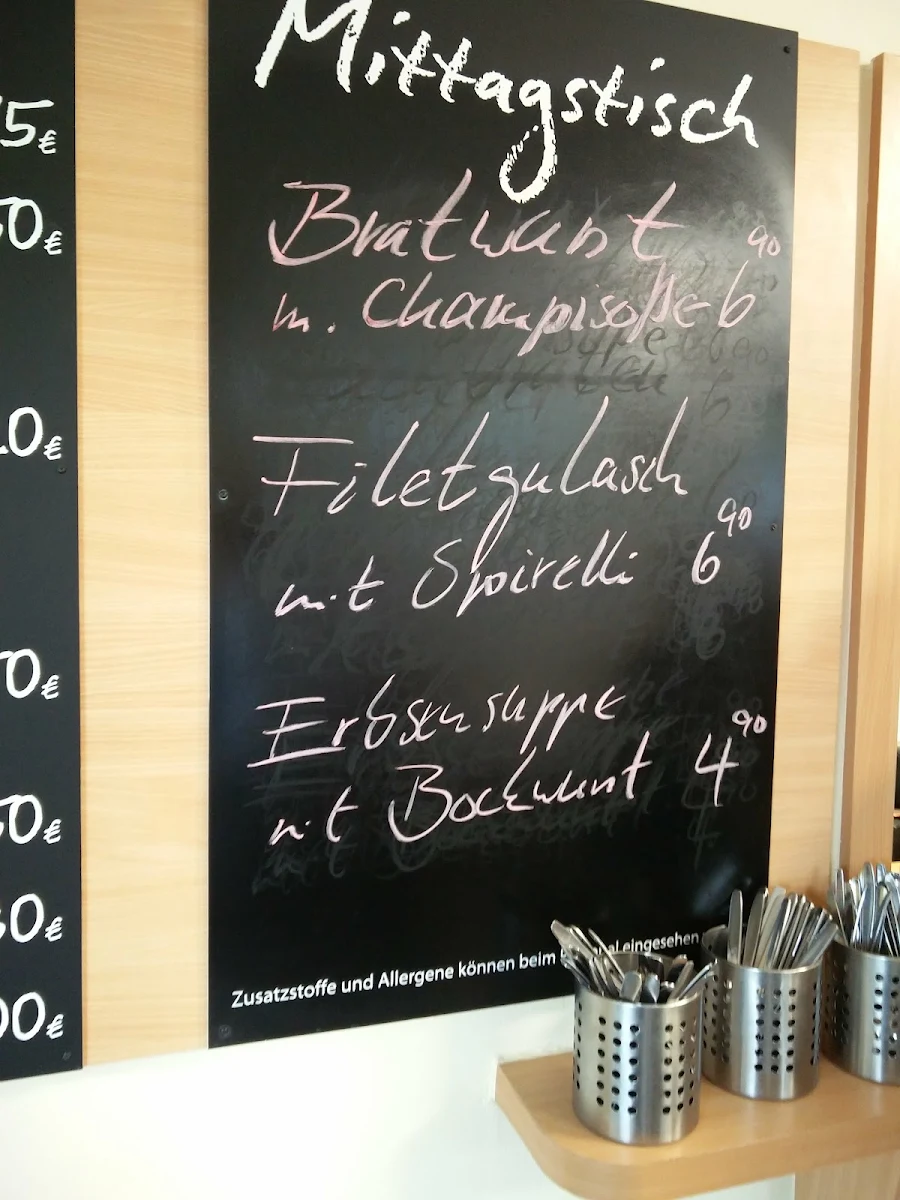 5€
0€
0€
0€
0€
0€
00€
Mittagstisch
Bratwurst 90
m. Champisoße 6
Filetgulasch
mit Spirelli 6 90
Erbsensuppe
mit Bockwurst 4 90
Zusatzstoffe und Allergene können beim eingesehen